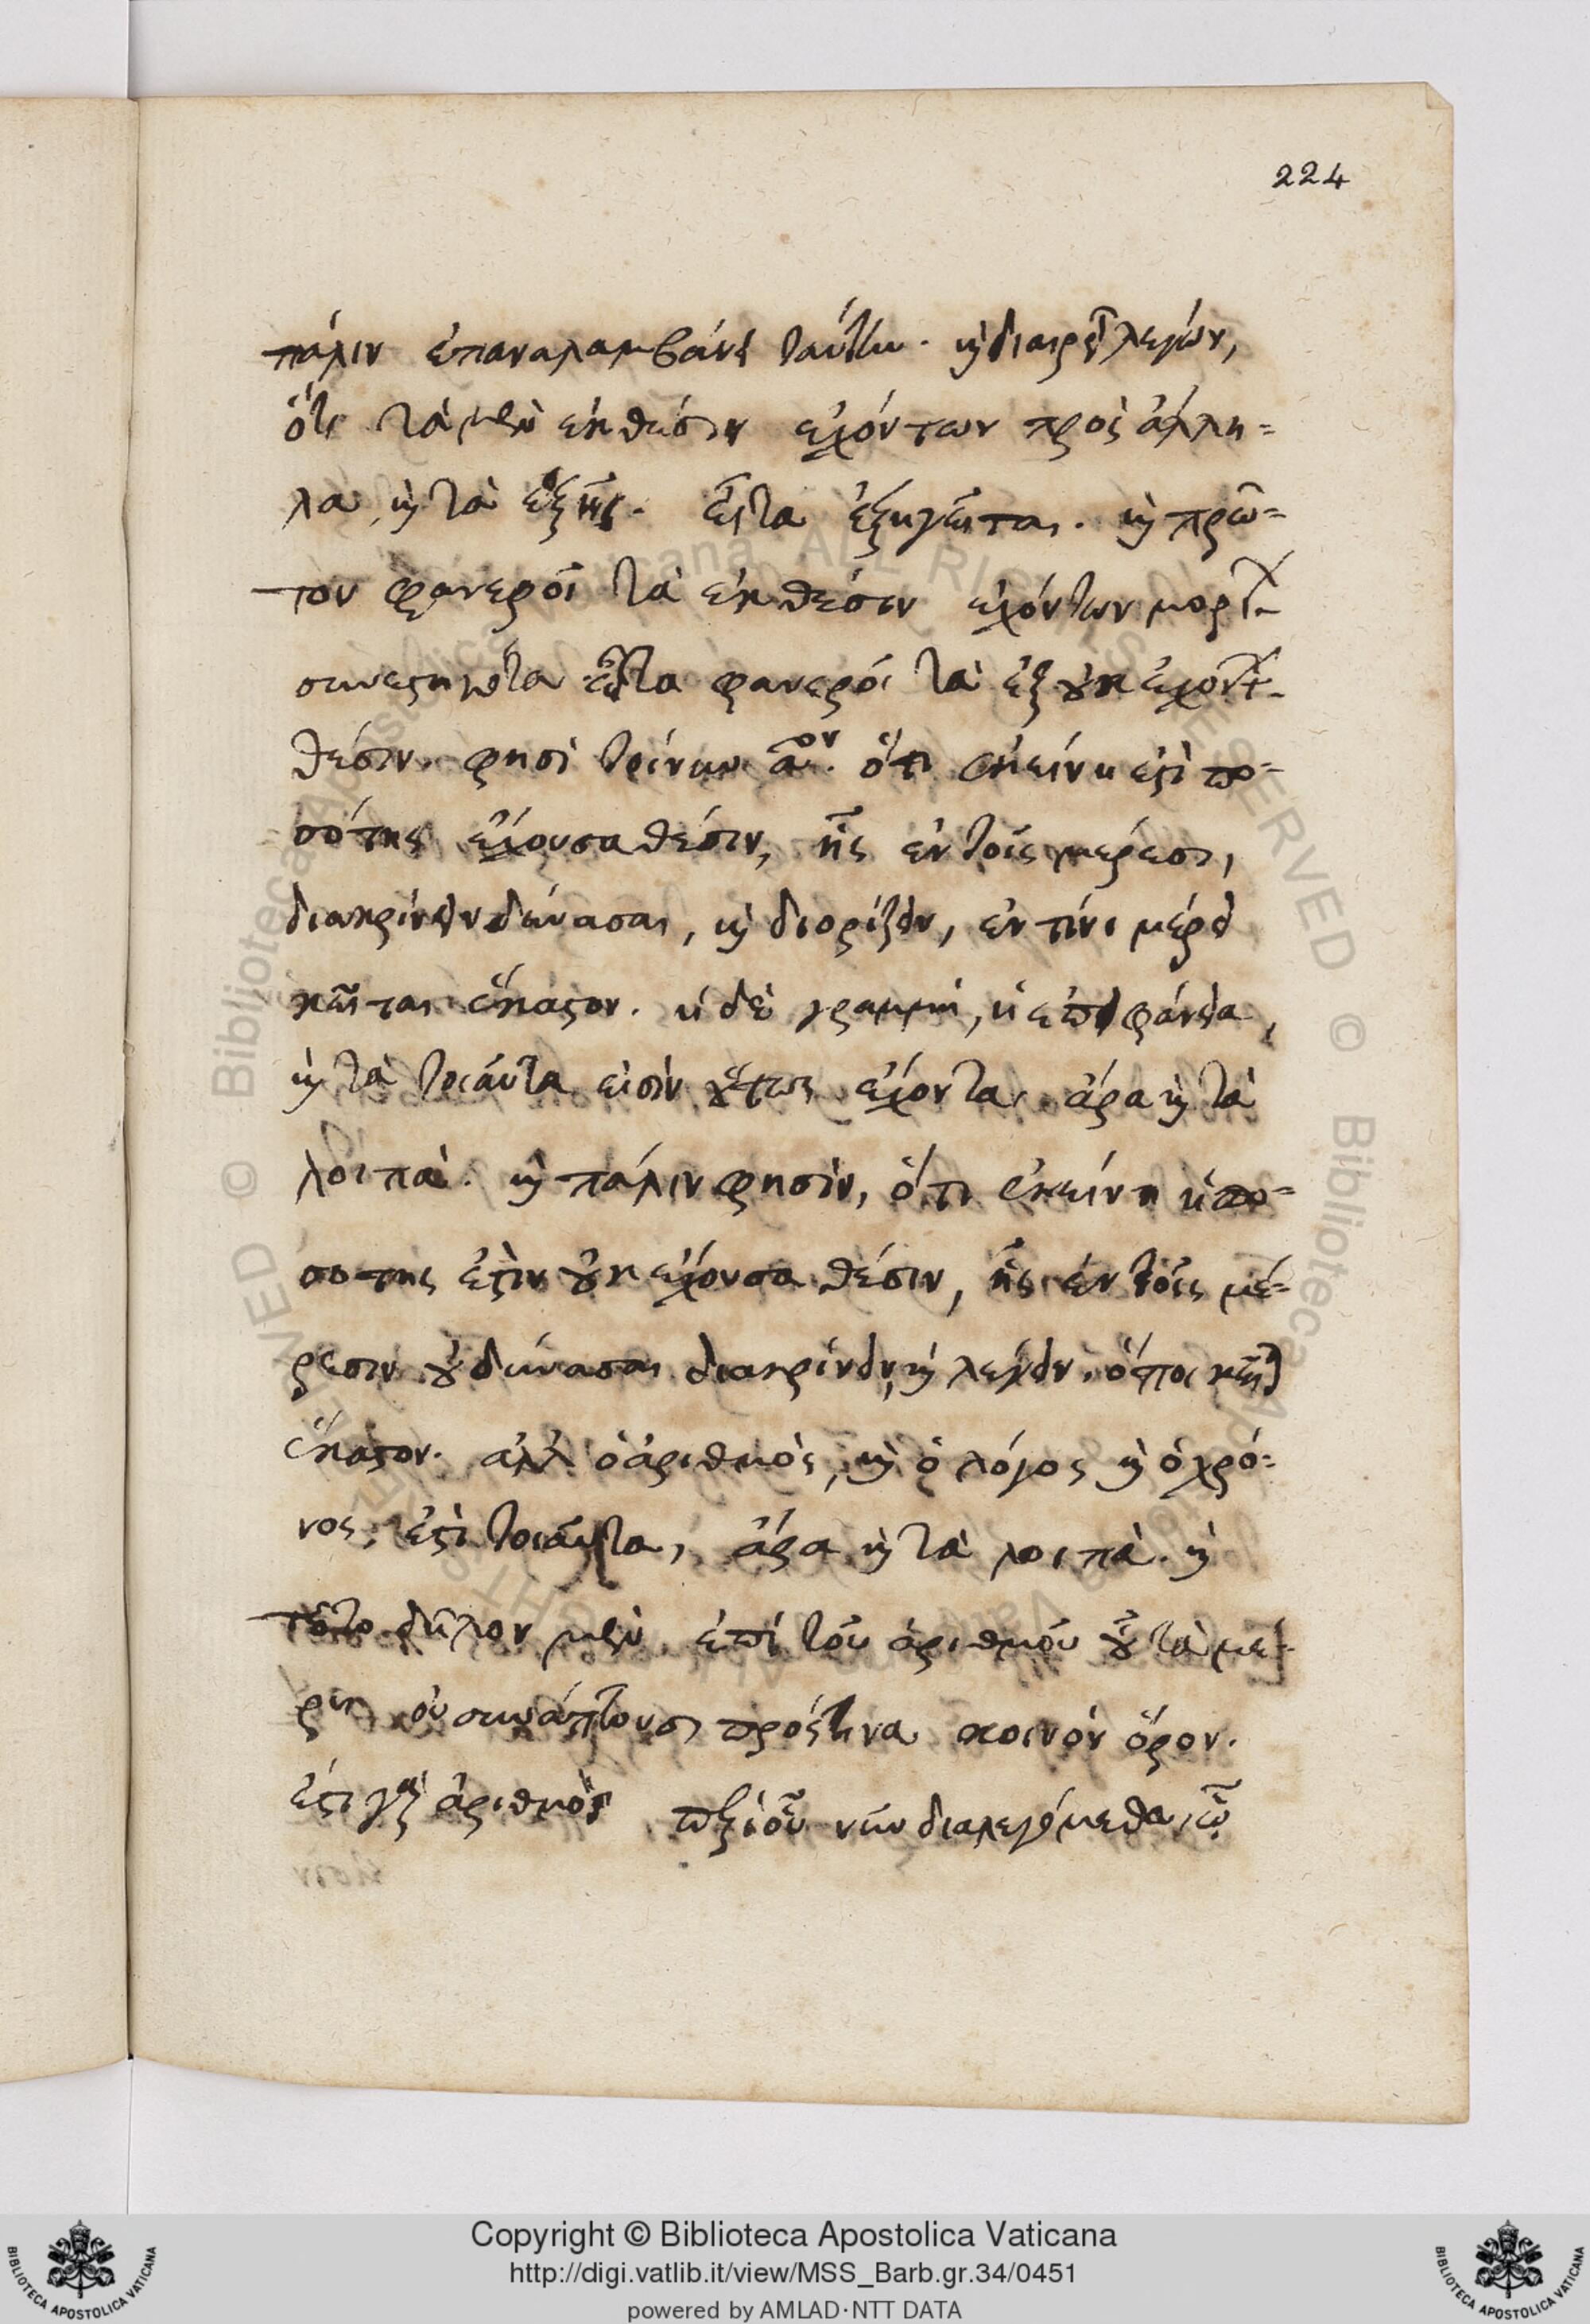 224
πάλιν ἐπαναλαμβάνει ταύτην. καὶ διαιρεῖ λέγων,
ὅτι τὰ μὲν ἐκ θέσιν ἐχόντων πρὸς ἄλλη=
λα, καὶ τὰ ἑξῆς. εἶτα ἐξηγεῖται. καὶ πρῶ=
τον φανεροῖ τὰ ἐκ θέσιν ἐχόντων μορίων
συνεστηκότα εἶτα φανεροῖ τὰ ἐξ οὐκ ἐχόντων
θέσιν. φησὶ ὅτι ἐκείνη ἐστὶ πο=
σότης ἔχουσα θέσιν, ἧς ἐν τοῖς μέρεσι,
διακρίνειν δύνασαι, καὶ διορίζειν, ἐν τίνι μέρει
κεῖται ἕκαστον. ἡ δὲ γραμμή, ἡ ἐπιφάνεια,
καὶ τὰ τοιαῦτα εἰσὶν οὕτως ἔχοντα. ἄρα καὶ τὰ
λοιπά. καὶ πάλιν φησὶν, ὅτι ἐκείνη ἡ πο=
σοτης ἐστὶν οὐκ ἔχουσα θέσιν, ἧς ἐν τοῖς μέ=
ρεσιν οὐ δύνασαι διακρίνειν, καὶ λέγειν. ὅποι κεῖται
ἕκαστον. ἀλλ' ὁ ἀριθμὸς, καὶ ὁ λόγος καὶ ὁ χρό=
νος, ἐστὶ τοιαῦτα, ἄρα καὶ τὰ λοιπὰ. καὶ
τοῦτο δῆλον μὲν ἐπὶ τοῦ ἀριθμοῦ οὗ τὰ μέ=
ρη οὐ συνάπτουσι πρός τινα κοινὸν ὅρον.
ἔστι γὰρ ἀριθμὸς περὶ οὗ νῦν διαλεγόμεθα, ᾧ
Copyright © Biblioteca Apostolica Vaticana
http://digi.vatlib.it/view/MSS_Barb.gr.34/0451
powered by AMLAD·NTT DATA